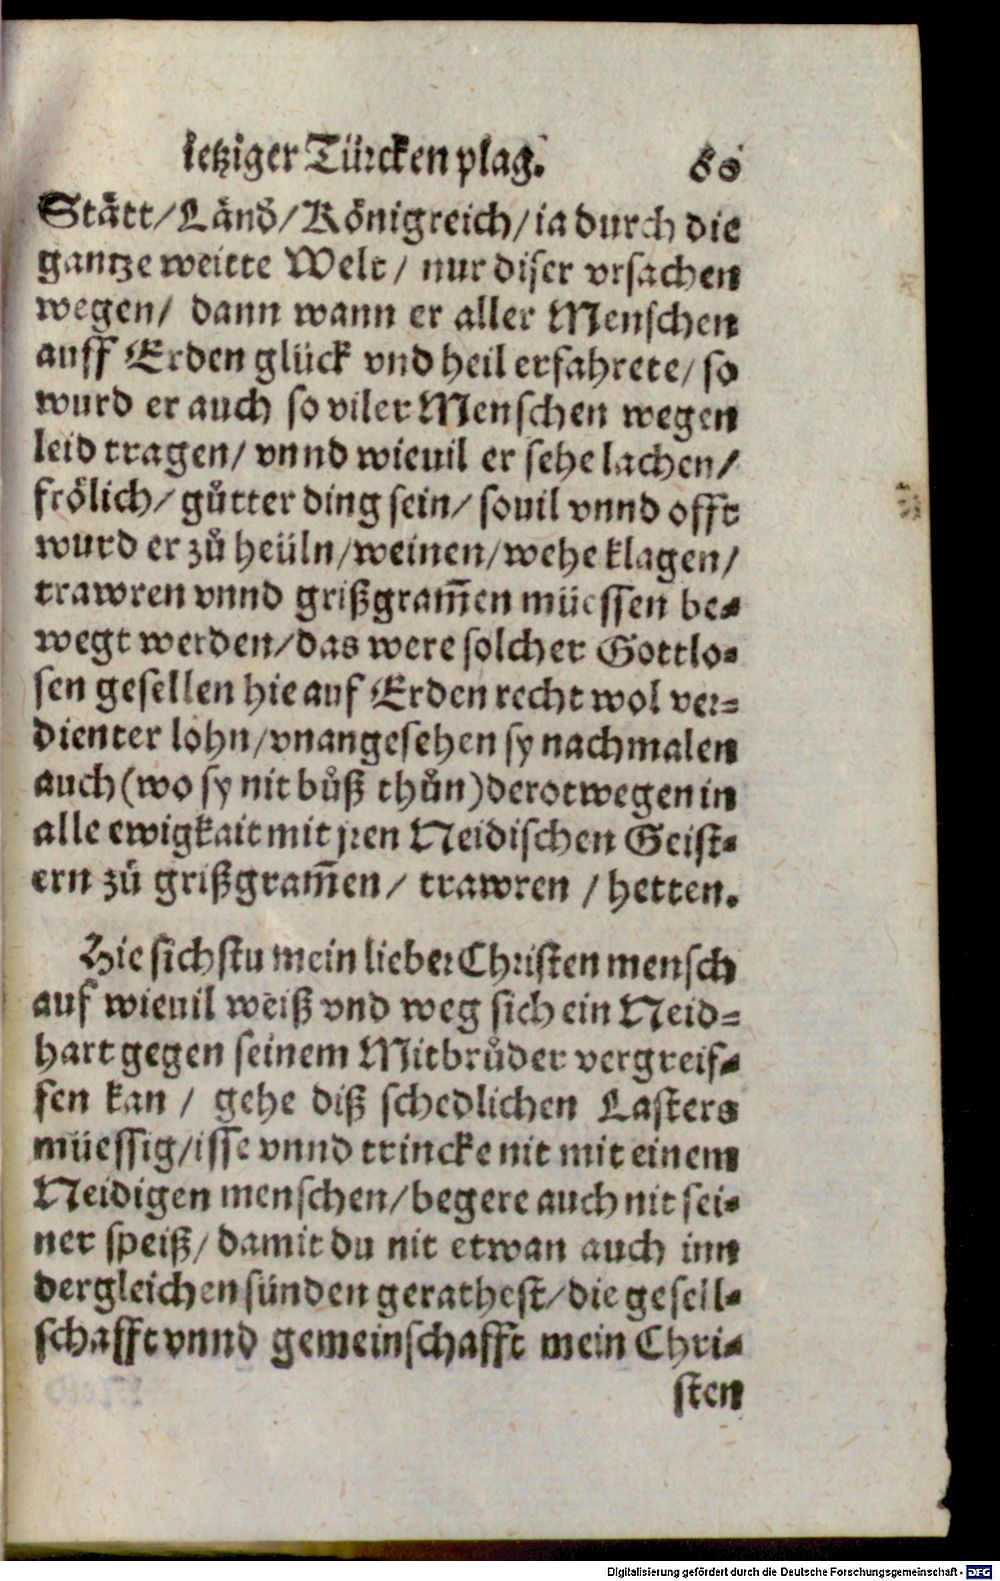 ietziger Türcken plag. 60
Stätt/Länd/Königreich/ia durch die
gantze weitte Welt/ nur diser vrsachen
wegen/ dann wann er aller Menschen
auff Erden glück vnd heil erfahrete/ so
wurd er auch so viler Menschen wegen
leid tragen/ vnnd wieuil er sehe lachen/
frölich/ gůtter ding sein/ souil vnnd offt
wurd er zů heüln/weinen/wehe klagen/
trawren vnnd grißgram̃en müessen be-
wegt werden/das were solcher Gottlo-
sen gesellen hie auf Erden recht wol ver-
dienter lohn/vnangesehen sy nachmalen
auch (wo sy nit bůß thůn) derotwegen in
alle ewigkait mit jren Neidischen Geist-
ern zů grißgram̃en/ trawren / hetten.
Hie sichstu mein lieber Christen mensch
auf wieuil weiß vnd weg sich ein Neid-
hart gegen seinem Mitbrůder vergreif-
fen kan / gehe diß schedlichen Lasters
müessig/isse vnnd trincke nit mit einem
Neidigen menschen/begere auch nit sei-
ner speiß/damit du nit etwan auch inn
dergleichen sünden gerathest/die gesell-
schafft vnnd gemeinschafft mein Chri-
sten
Digitalisierung gefördert durch die Deutsche Forschungsgemeinschaft - DFG